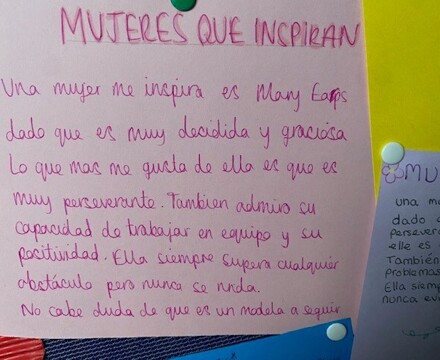 MUJERES QUE INSPIRAN
Una mujer me inspira es Mary Earps
dado que es muy decidida y graciosa
Lo que mas me gusta de ella es que es
muy perseverante. Tambien admiro su
capacidad de trabajar en equipo y su
positividad. Ella siempre supera cualquier
obstáculo pero nunca se rinda.
No cabe duda de que es un modelo a seguir
MU
una mu
dado
persever
elle es
También
problemas
Ella siem
nunca ev